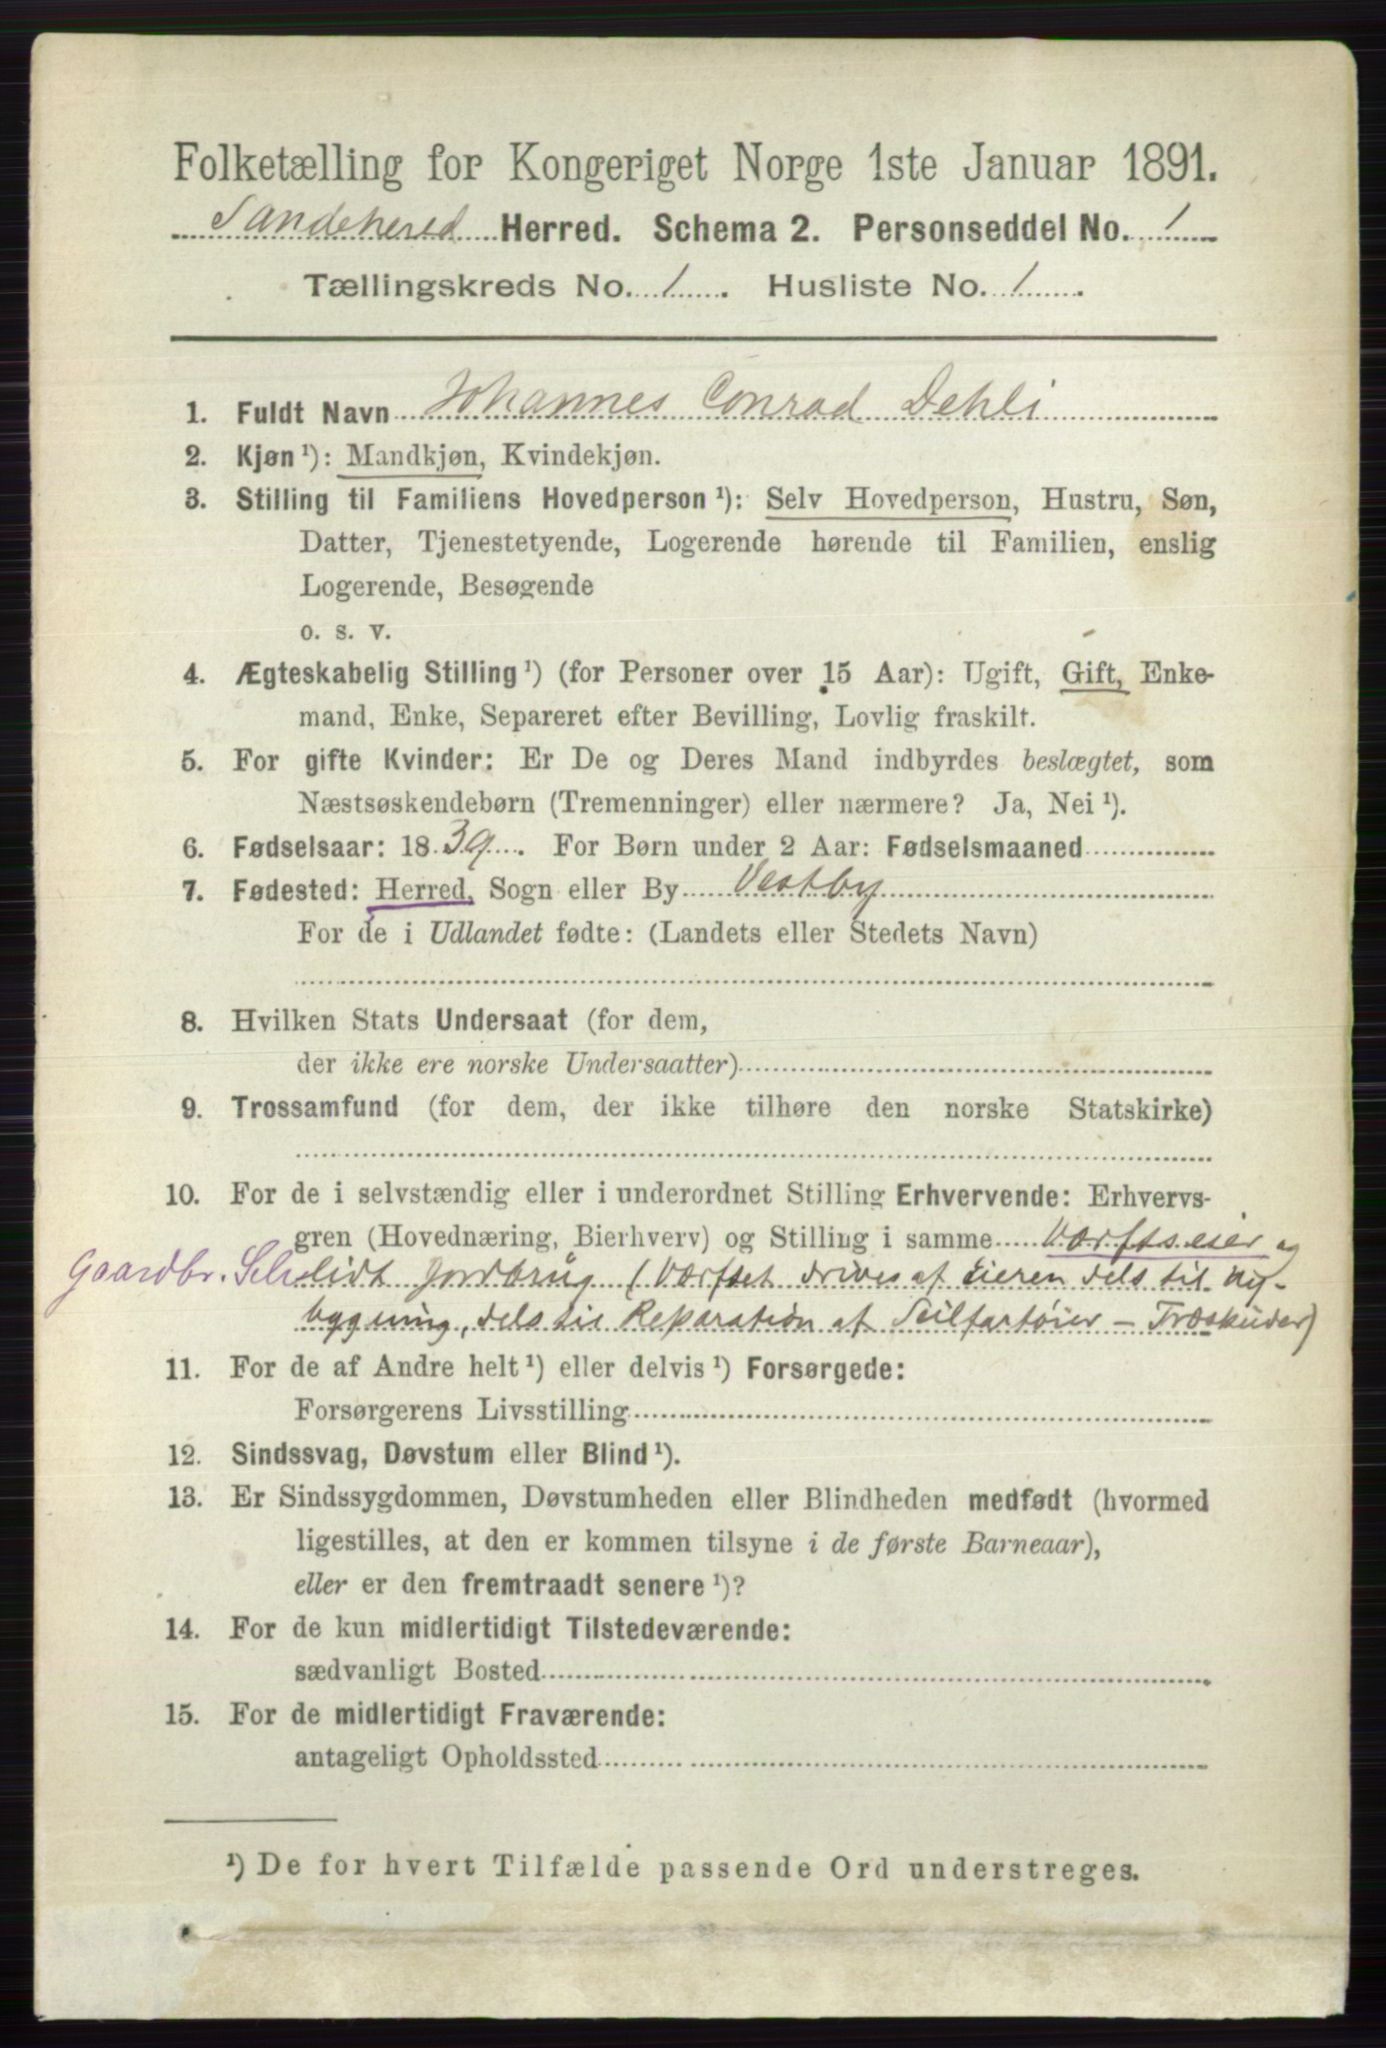 Folketælling for Kongeriget Norge 1ste Januar 1891.
Sandehered Herred. Schema 2. Personseddel No. 1
Tællingskreds No. 1. Husliste No. 1.
1. Fuldt Navn Johannes Conrad Dehli
2. Kjøn ¹): Mandkjøn, Kvindekjøn.
3. Stilling til Familiens Hovedperson ¹): Selv Hovedperson, Hustru, Søn,
Datter, Tjenestetyende, Logerende hørende til Familien, enslig
Logerende, Besøgende
o. s. v.
4. Ægteskabelig Stilling ¹) (for Personer over 15 Aar): Ugift, Gift, Enke-
mand, Enke, Separeret efter Bevilling, Lovlig fraskilt.
5. For gifte Kvinder: Er De og Deres Mand indbyrdes beslægtet, som
Næstsøskendebørn (Tremenninger) eller nærmere? Ja, Nei ¹).
6. Fødselsaar: 1839. For Børn under 2 Aar: Fødselsmaaned
7. Fødested: Herred, Sogn eller By Vestby
For de i Udlandet fødte: (Landets eller Stedets Navn)
8. Hvilken Stats Undersaat (for dem,
der ikke ere norske Undersaatter)
9. Trossamfund (for dem, der ikke tilhøre den norske Statskirke)
10. For de i selvstændig eller i underordnet Stilling Erhvervende: Erhvervs-
gren (Hovednæring, Bierhverv) og Stilling i samme Værftseier og
Gaardbr. Selv lidt Jordbrug (Værftet drives af Eieren dels til Ny-
bygning, dels til Reparation af Seilfartøier – Træskuder)
11. For de af Andre helt ¹) eller delvis ¹) Forsørgede:
Forsørgerens Livsstilling
12. Sindssvag, Døvstum eller Blind ¹).
13. Er Sindssygdommen, Døvstumheden eller Blindheden medfødt (hvormed
ligestilles, at den er kommen tilsyne i de første Barneaar),
eller er den fremtraadt senere ¹)?
14. For de kun midlertidigt Tilstedeværende:
sædvanligt Bosted
15. For de midlertidigt Fraværende:
antageligt Opholdssted
¹) De for hvert Tilfælde passende Ord understreges.